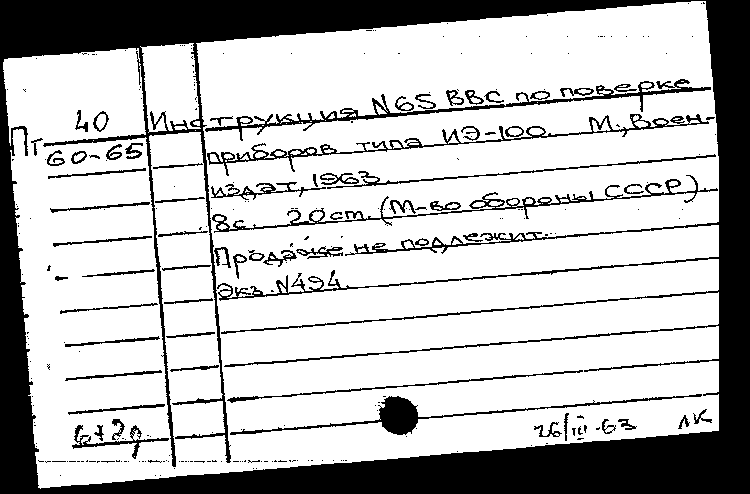 Пт 40
60-65
Инструкция N65 ВВС по поверке
приборов типа ИЭ-100. М., Воен-
издат, 1963.
8с. 20ст. (М-во обороны СССР).
Продаже не подлежит.
Экз. N494.
26/III-63 ЛК